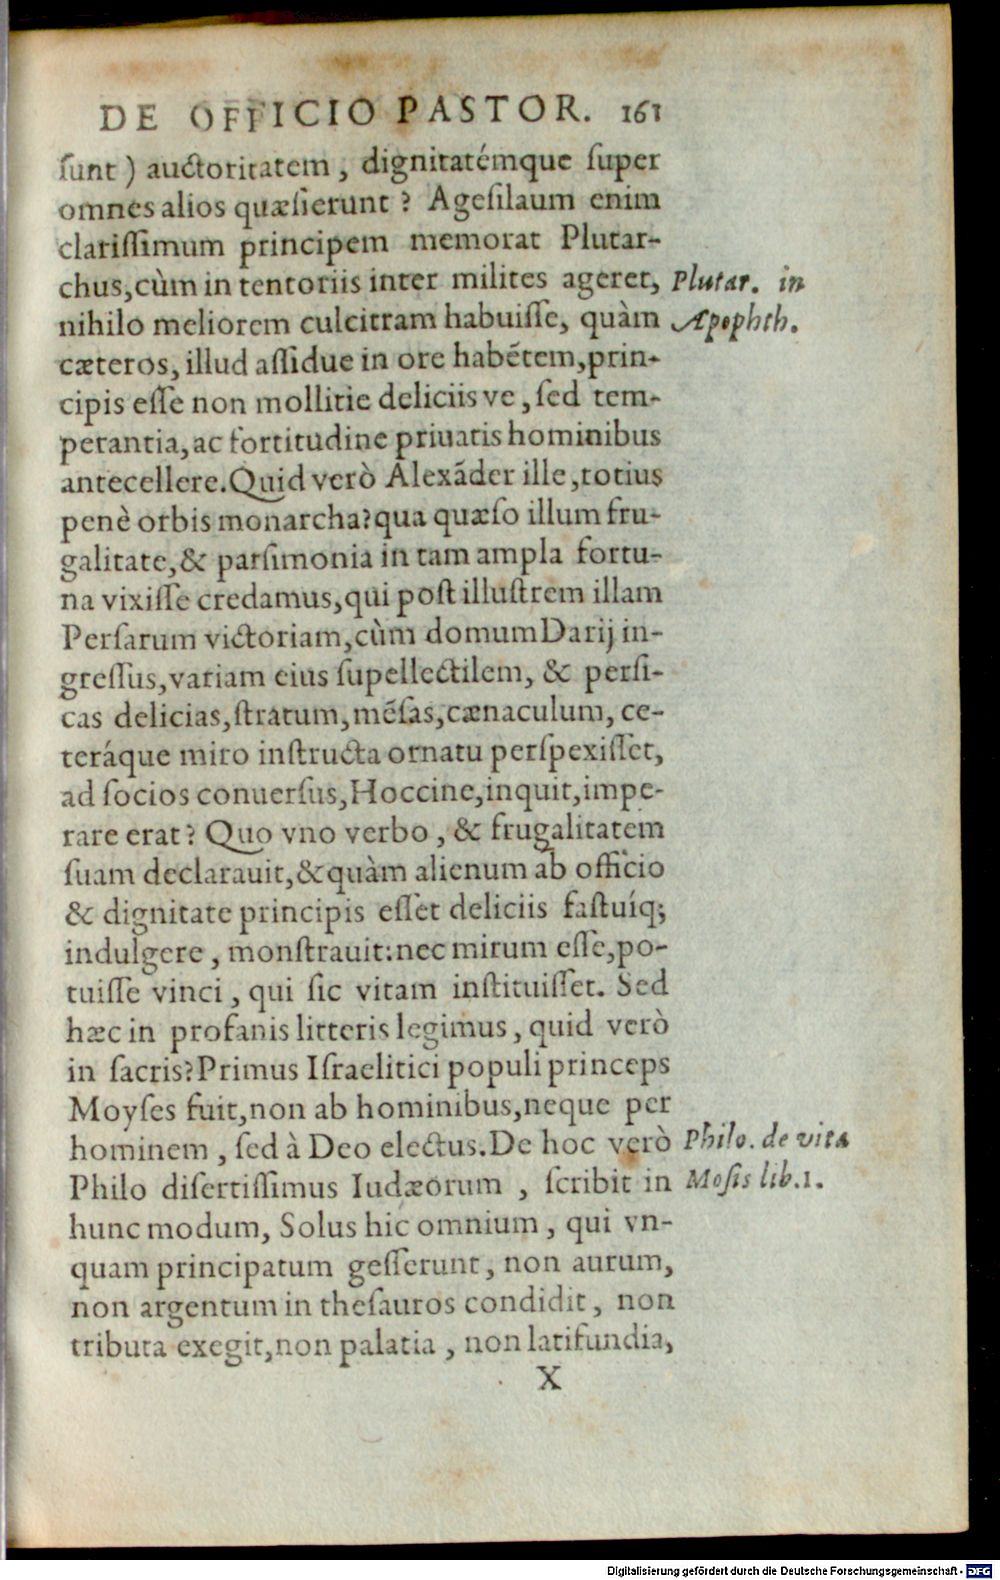 DE OFFICIO PASTOR. 161
sunt) auctoritatem, dignitatémque super
omnes alios quæsierunt? Agesilaum enim
clarissimum principem memorat Plutar-
chus, cùm in tentoriis inter milites ageret,
Plutar. in
nihilo meliorem culcitram habuisse, quàm
Apophth.
cæteros, illud assidue in ore habẽtem, prin-
cipis esse non mollitie deliciis ve, sed tem-
perantia, ac fortitudine priuatis hominibus
antecellere. Quid verò Alexãder ille, totius
penè orbis monarcha? qua quæso illum fru-
galitate, & parsimonia in tam ampla fortu-
na vixisse credamus, qui post illustrem illam
Persarum victoriam, cùm domum Darij in-
gressus, variam eius supellectilem, & persi-
cas delicias, stratum, mẽsas, cænaculum, ce-
teráque miro instructa ornatu perspexisset,
ad socios conuersus, Hoccine, inquit, impe-
rare erat? Quo vno verbo, & frugalitatem
suam declarauit, & quàm alienum ab officio
& dignitate principis esset deliciis fastuíq;
indulgere, monstrauit: nec mirum esse, po-
tuisse vinci, qui sic vitam instituisset. Sed
hæc in profanis litteris legimus, quid verò
in sacris? Primus Israelitici populi princeps
Moyses fuit, non ab hominibus, neque per
hominem, sed à Deo electus. De hoc verò
Philo. de vita
Philo disertissimus Iudæorum, scribit in
Mosis lib. 1.
hunc modum, Solus hic omnium, qui vn-
quam principatum gesserunt, non aurum,
non argentum in thesauros condidit, non
tributa exegit, non palatia, non latifundia,
X
Digitalisierung gefördert durch die Deutsche Forschungsgemeinschaft - DFG